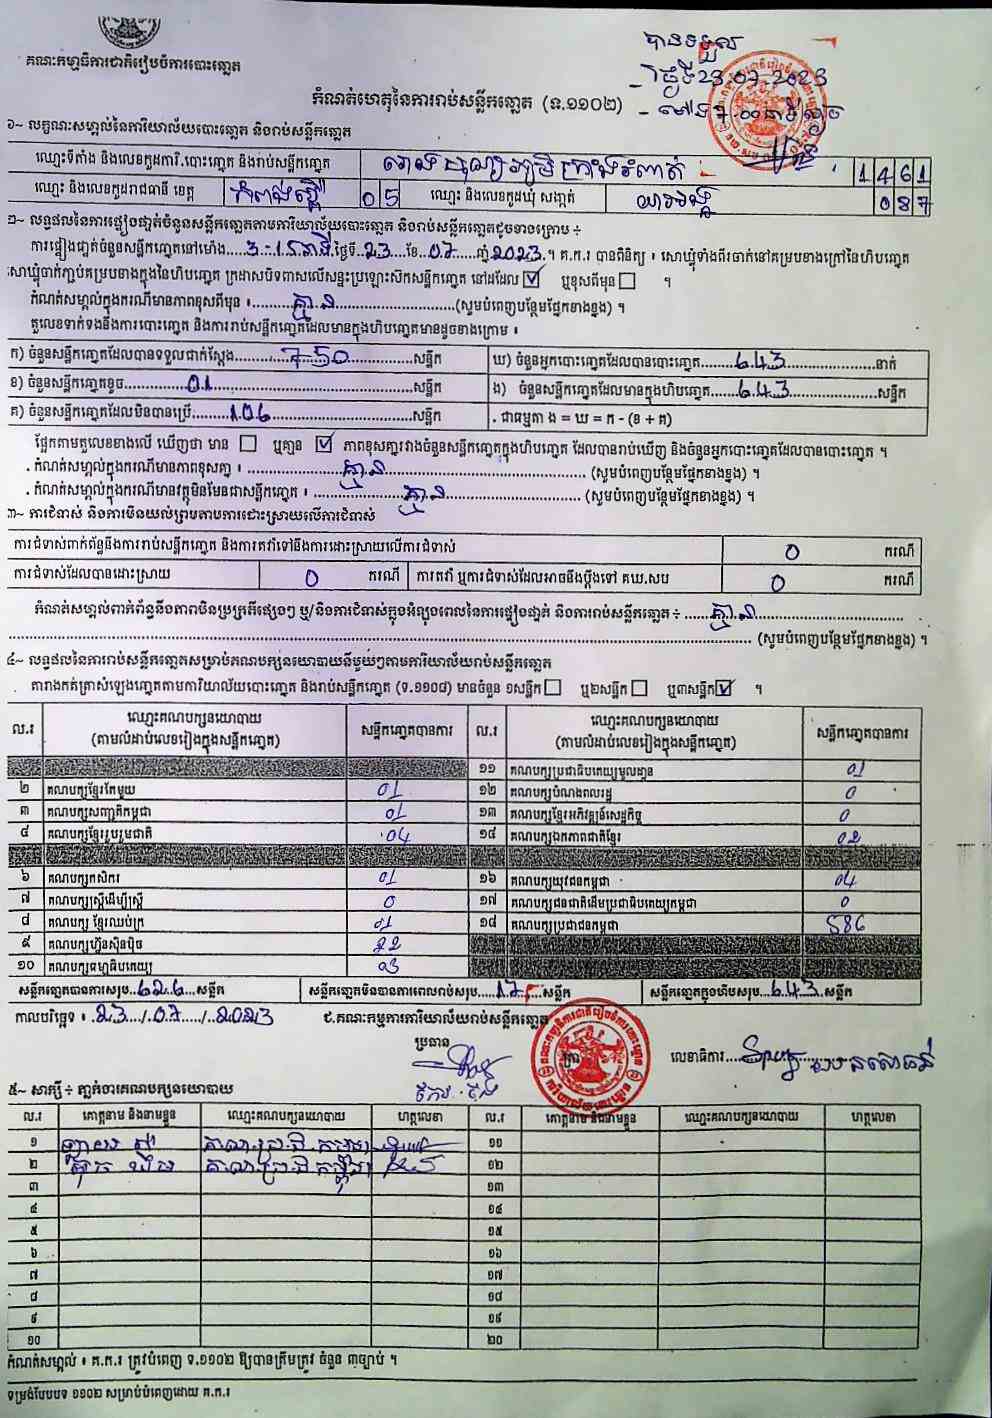 គណៈកម្មាធិការជាតិរៀបចំការបោះឆ្នោត
បានទទួល
ថ្ងៃទី23.07-2023
កំណត់ហេតុនៃការរាប់សន្លឹកឆ្នោត (ទ.១១០២)
១~ លក្ខណៈសម្គាល់នៃការិយាល័យបោះឆ្នោត និងរាប់សន្លឹកឆ្នោត
ឈ្មោះទីតាំង និងលេខកូដការិ.បោះឆ្នោត និងរាប់សន្លឹកឆ្នោត 1461
ឈ្មោះ និងលេខកូដរាជធានី ខេត្ត កំពង់ស្ពឺ 05 ឈ្មោះ និងលេខកូដឃុំ សង្កាត់ 087
២~ លទ្ធផលនៃការផ្ទៀងផ្ទាត់ចំនួនសន្លឹកឆ្នោតតាមការិយាល័យបោះឆ្នោត និងរាប់សន្លឹកឆ្នោតដូចខាងក្រោម ÷
ការផ្ទៀងផ្ទាត់ចំនួនសន្លឹកឆ្នោតនៅម៉ោង 3:15នាទី ថ្ងៃទី 23 ខែ 07 ឆ្នាំ 2023 ។ គ.ក.រ បានពិនិត្យ ៖ សោឃ្លុំទាំងពីរចាក់នៅគម្របខាងក្រៅនៃហិបឆ្នោត
សោឃ្លុំចាក់ភ្ជាប់គម្របខាងក្នុងនៃហិបឆ្នោត ក្រដាសបិទពាសលើសន្ទះប្រឡោះស៊កសន្លឹកឆ្នោត នៅដដែល ☑ ឬខុសពីមុន ☐ ។
កំណត់សម្គាល់ក្នុងករណីមានភាពខុសពីមុន ៖ គ្មាន (សូមបំពេញបន្ថែមផ្នែកខាងខ្នង) ។
តួលេខទាក់ទងនឹងការបោះឆ្នោត និងការរាប់សន្លឹកឆ្នោតដែលមានក្នុងហិបឆ្នោតមានដូចខាងក្រោម ៖
ក) ចំនួនសន្លឹកឆ្នោតដែលបានទទួលជាក់ស្តែង 750 សន្លឹក ឃ) ចំនួនអ្នកបោះឆ្នោតដែលបានបោះឆ្នោត 643 នាក់
ខ) ចំនួនសន្លឹកឆ្នោតខូច 01 សន្លឹក ង) ចំនួនសន្លឹកឆ្នោតដែលមានក្នុងហិបឆ្នោត 643 សន្លឹក
គ) ចំនួនសន្លឹកឆ្នោតដែលមិនបានប្រើ 106 សន្លឹក . ជាធម្មតា ង = ឃ = ក - (ខ + គ)
ផ្អែកតាមតួលេខខាងលើ ឃើញថា មាន ☐ ឬគ្មាន ☑ ភាពខុសគ្នារវាងចំនួនសន្លឹកឆ្នោតក្នុងហិបឆ្នោត ដែលបានរាប់ឃើញ និងចំនួនអ្នកបោះឆ្នោតដែលបានបោះឆ្នោត ។
. កំណត់សម្គាល់ក្នុងករណីមានភាពខុសគ្នា ៖ គ្មាន (សូមបំពេញបន្ថែមផ្នែកខាងខ្នង) ។
. កំណត់សម្គាល់ក្នុងករណីមានវត្ថុមិនមែនជាសន្លឹកឆ្នោត ៖ គ្មាន (សូមបំពេញបន្ថែមផ្នែកខាងខ្នង) ។
៣~ ការជំទាស់ និងការមិនយល់ព្រមតាមការដោះស្រាយលើការជំទាស់
ការជំទាស់ពាក់ព័ន្ធនឹងការរាប់សន្លឹកឆ្នោត និងការតវ៉ាទៅនឹងការដោះស្រាយលើការជំទាស់ 0 ករណី
ការជំទាស់ដែលបានដោះស្រាយ 0 ករណី ការតវ៉ា ឬការជំទាស់ដែលអាចនឹងប្តឹងទៅ គឃ.សប 0 ករណី
កំណត់សម្គាល់ពាក់ព័ន្ធនឹងភាពមិនប្រក្រតីផ្សេងៗ ឬ/និងការជំទាស់ក្នុងអំឡុងពេលនៃការផ្ទៀងផ្ទាត់ និងការរាប់សន្លឹកឆ្នោត ÷ គ្មាន
(សូមបំពេញបន្ថែមផ្នែកខាងខ្នង) ។
៤~ លទ្ធផលនៃការរាប់សន្លឹកឆ្នោតសម្រាប់គណបក្សនយោបាយនីមួយៗតាមការិយាល័យរាប់សន្លឹកឆ្នោត
តារាងកត់ត្រាសំឡេងឆ្នោតតាមការិយាល័យបោះឆ្នោត និងរាប់សន្លឹកឆ្នោត (ទ.១១០៨) មានចំនួន ១សន្លឹក ☐ ឬ២សន្លឹក ☐ ឬ៣សន្លឹក ☑ ។
ល.រ ឈ្មោះគណបក្សនយោបាយ (តាមលំដាប់លេខរៀងក្នុងសន្លឹកឆ្នោត) សន្លឹកឆ្នោតបានការ ល.រ ឈ្មោះគណបក្សនយោបាយ (តាមលំដាប់លេខរៀងក្នុងសន្លឹកឆ្នោត) សន្លឹកឆ្នោតបានការ
១១ គណបក្សប្រជាធិបតេយ្យមូលដ្ឋាន 01
២ គណបក្សខ្មែរតែមួយ 01 ១២ គណបក្សបំណងពលរដ្ឋ 0
៣ គណបក្សសញ្ជាតិកម្ពុជា 01 ១៣ គណបក្សខ្មែរអភិវឌ្ឍន៍សេដ្ឋកិច្ច 0
៤ គណបក្សខ្មែររួបរួមជាតិ 04 ១៤ គណបក្សឯកភាពជាតិខ្មែរ 02
៦ គណបក្សកសិករ 01 ១៦ គណបក្សយុវជនកម្ពុជា 04
៧ គណបក្សស្ត្រីដើម្បីស្ត្រី 0 ១៧ គណបក្សជនជាតិដើមប្រជាធិបតេយ្យកម្ពុជា 0
៨ គណបក្ស ខ្មែរឈប់ក្រ 01 ១៨ គណបក្សប្រជាជនកម្ពុជា 586
៩ គណបក្សហ៊្វុនស៊ិនប៉ិច 22
១០ គណបក្សធម្មាធិបតេយ្យ 03
សន្លឹកឆ្នោតបានការសរុប 626 សន្លឹក សន្លឹកឆ្នោតមិនបានការពេលរាប់សរុប 17 សន្លឹក សន្លឹកឆ្នោតក្នុងហិបសរុប 643 សន្លឹក
កាលបរិច្ឆេទ ៖ 23 / 07 / 2023 ជ.គណៈកម្មការការិយាល័យរាប់សន្លឹកឆ្នោត
ប្រធាន លេខាធិការ
៥~ សាក្សី ÷ ភ្នាក់ងារគណបក្សនយោបាយ
ល.រ គោត្តនាម និងនាមខ្លួន ឈ្មោះគណបក្សនយោបាយ ហត្ថលេខា ល.រ គោត្តនាម និងនាមខ្លួន ឈ្មោះគណបក្សនយោបាយ ហត្ថលេខា
១ ១១
២ ១២
៣ ១៣
៤ ១៤
៥ ១៥
៦ ១៦
៧ ១៧
៨ ១៨
៩ ១៩
១០ ២០
កំណត់សម្គាល់ ៖ គ.ក.រ ត្រូវបំពេញ ទ.១១០២ ឱ្យបានត្រឹមត្រូវ ចំនួន ៣ច្បាប់ ។
ទម្រង់បែបបទ ១១០២ សម្រាប់បំពេញដោយ គ.ក.រ